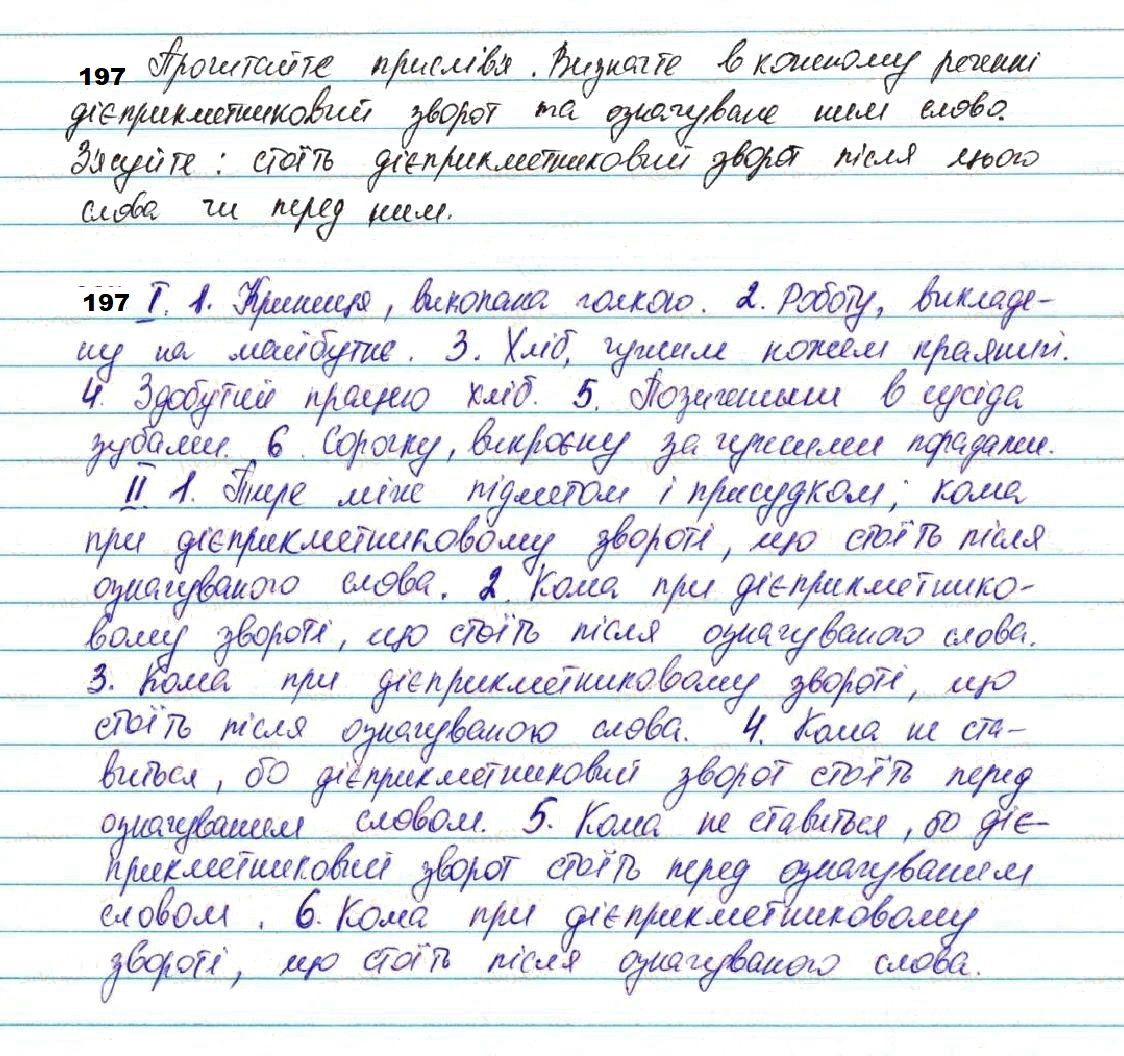 197 Прочитайте прислів'я. Визначте в кожному реченні
дієприкметниковий зворот та означуване ним слово.
З'ясуйте: стоїть дієприкметниковий зворот після цього
слова чи перед ним.
197 I. 1. Криниця, викопана голкою. 2. Роботу, викладе-
ну на майбутнє. 3. Хліб, чужим ножем краяний.
4. Здобутий працею хліб. 5. Позиченими в сусіда
зубами. 6. Сорочку, викроєну за чужими порадами.
II. 1. Тире між підметом і присудком; кома
при дієприкметниковому звороті, що стоїть після
означуваного слова. 2. Кома при дієприкметнико-
вому звороті, що стоїть після означуваного слова.
3. Кома при дієприкметниковому звороті, що
стоїть після означуваного слова. 4. Кома не ста-
виться, бо дієприкметниковий зворот стоїть перед
означуваним словом. 5. Кома не ставиться, бо діє-
прикметниковий зворот стоїть перед означуваним
словом. 6. Кома при дієприкметниковому
звороті, що стоїть після означуваного слова.